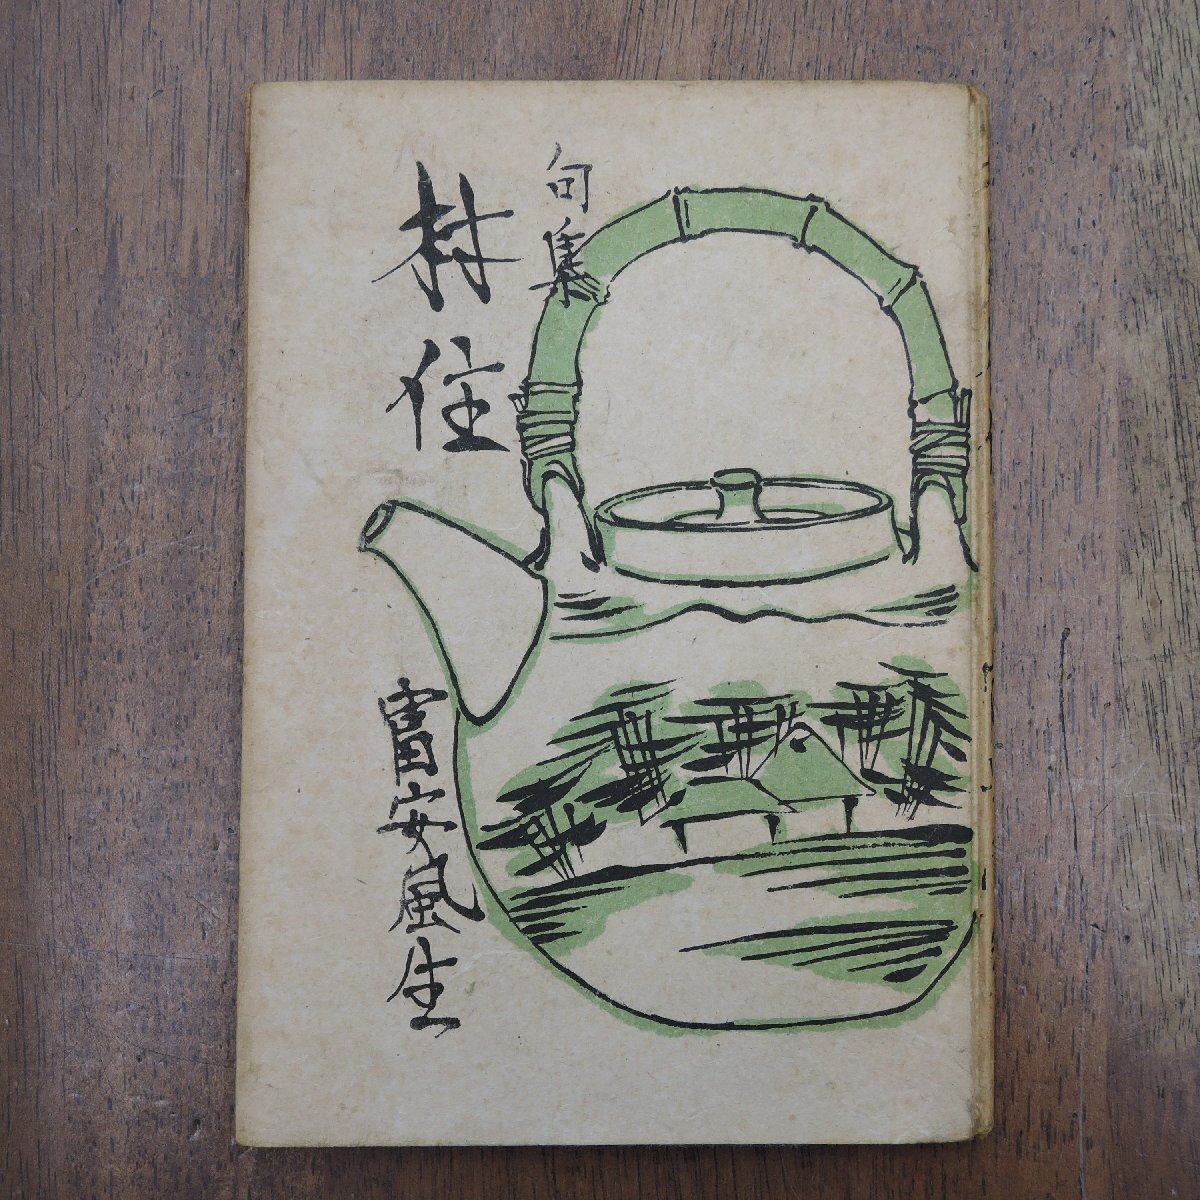 句集
村住
富安風生